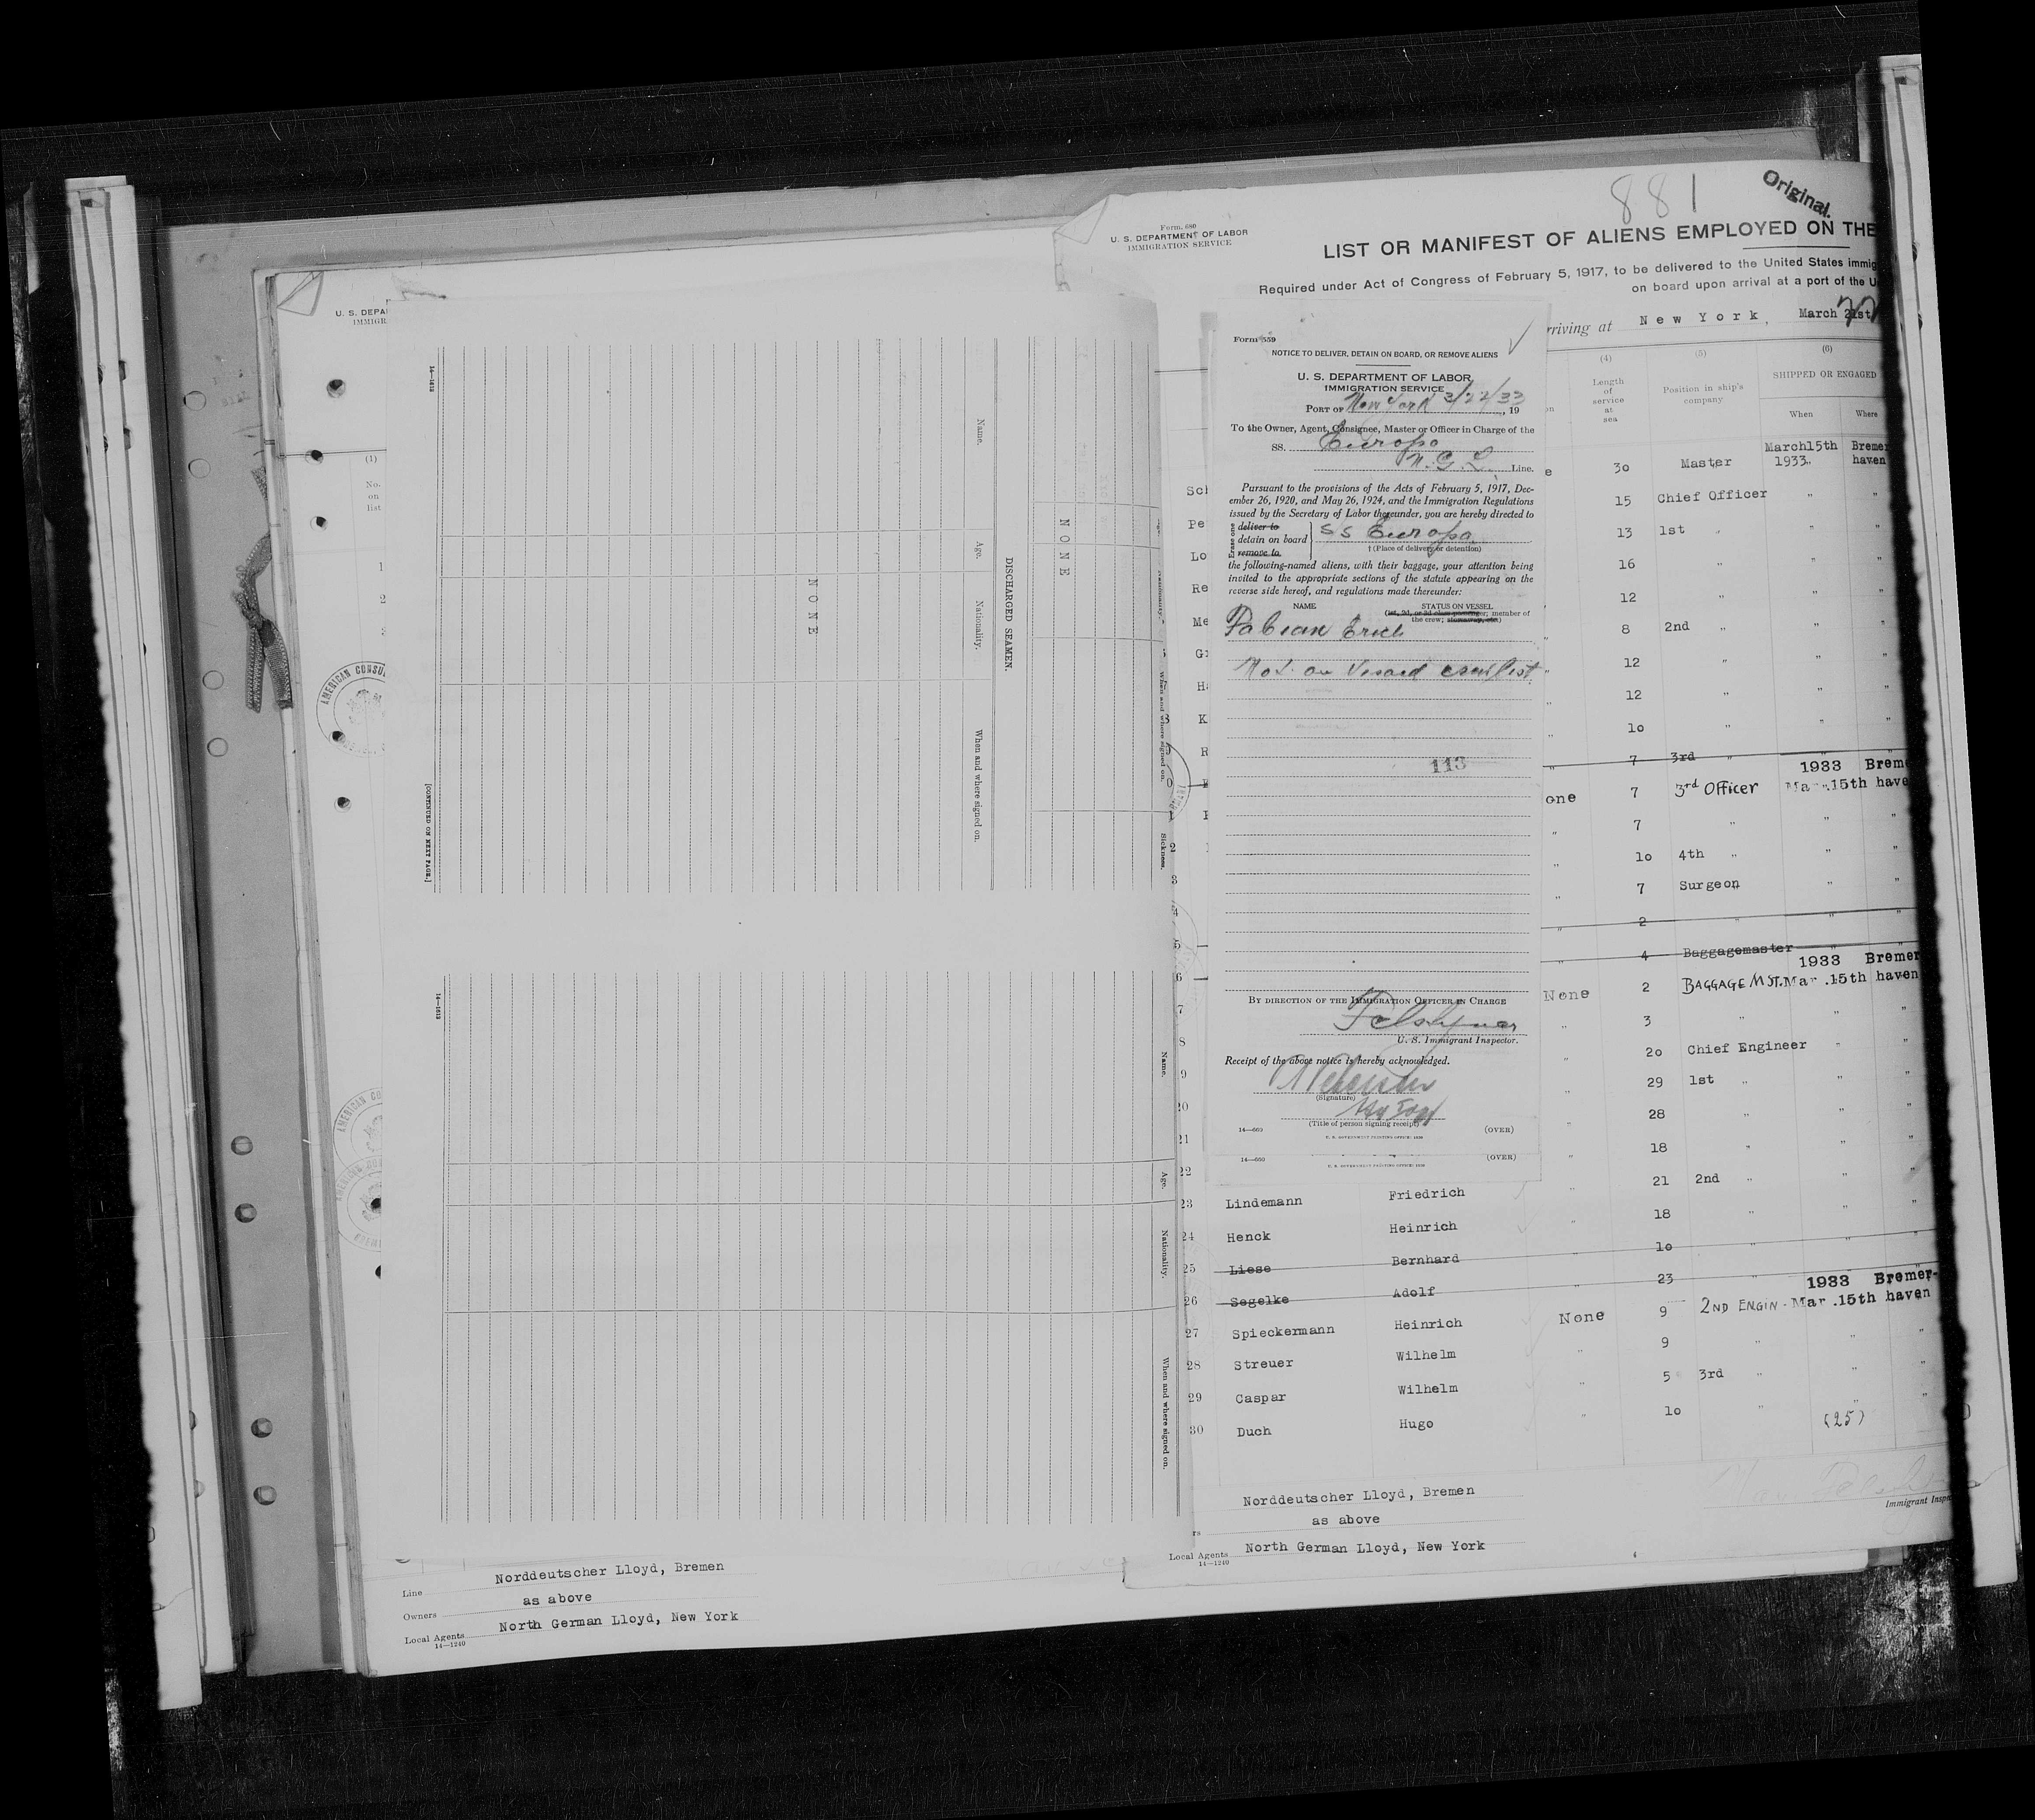 U. S. DEPA
IMMIGR
(1)
No.
on
list
1
2
AMERICAN CONSU
14—1613
Name.
Age.
Nationality.
When and where signed on.
NONE
DISCHARGED SEAMEN.
NONE
When and where signed on.
Sickness.
[CONTINUED ON NEXT PAGE.]
14—1613
Name.
Age.
Nationality.
When and where signed on.
Line Norddeutscher Lloyd, Bremen
Owners as above
Local Agents North German Lloyd, New York
14—1240
881
Original.
Form 680
U. S. DEPARTMENT OF LABOR
IMMIGRATION SERVICE
LIST OR MANIFEST OF ALIENS EMPLOYED ON THE
Required under Act of Congress of February 5, 1917, to be delivered to the United States immig
on board upon arrival at a port of the U
rriving at New York, March 21st
(4) (5) (6)
Length of service at sea
Position in ship's company
SHIPPED OR ENGAGED
When Where
Form 559
NOTICE TO DELIVER, DETAIN ON BOARD, OR REMOVE ALIENS
U. S. DEPARTMENT OF LABOR
IMMIGRATION SERVICE
PORT OF New York 3/22/33, 19
To the Owner, Agent, Consignee, Master or Officer in Charge of the
SS. Europa
N. G. L. Line.
Pursuant to the provisions of the Acts of February 5, 1917, Dec-
ember 26, 1920, and May 26, 1924, and the Immigration Regulations
issued by the Secretary of Labor thereunder, you are hereby directed to
Erase one
deliver to
detain on board
remove to
SS Europa
† (Place of delivery or detention)
the following-named aliens, with their baggage, your attention being
invited to the appropriate sections of the statute appearing on the
reverse side hereof, and regulations made thereunder:
NAME STATUS ON VESSEL
(1st, 2d, or 3d class passenger; member of
the crew; stowaway, etc.)
Fabian Erich
Not on Vessel crew list
113
BY DIRECTION OF THE IMMIGRATION OFFICER IN CHARGE
U. S. Immigrant Inspector.
Receipt of the above notice is hereby acknowledged.
(Signature)
(Title of person signing receipt)
14—660 (OVER)
U. S. GOVERNMENT PRINTING OFFICE
14—660 (OVER)
U. S. GOVERNMENT PRINTING OFFICE
e 30 Master March15th 1933 Bremer haven
15 Chief Officer " "
13 1st " " "
16 " " "
12 " " "
" 8 2nd " " "
" 12 " " "
" 12 " " "
" 10 " " "
" 7 3rd " " "
one 7 3rd Officer 1933 Mar.15th Breme have
" 7 " " "
" 10 4th " " "
" 7 Surgeon " "
" 2 " " "
" 4 Baggagemaster " "
None 2 BAGGAGE MST. 1933 Mar.15th Bremer haven
" 3 " " "
" 20 Chief Engineer " "
" 29 1st " " "
" 28 " " "
" 18 " " "
23 Lindemann Friedrich " 21 2nd " " "
24 Henck Heinrich " 18 " " "
25 Liese Bernhard " 10 " " "
26 Segelke Adolf " 23 "
27 Spieckermann Heinrich None 9 2ND ENGIN. 1933 Mar.15th Bremer- haven
28 Streuer Wilhelm " 9 " " "
29 Caspar Wilhelm " 5 3rd " " "
30 Duch Hugo " 10 " " "
(25)
Norddeutscher Lloyd, Bremen
as above
Local Agents North German Lloyd, New York
14—1240
Immigrant Inspe